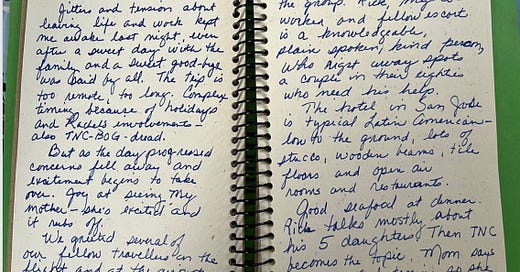 Jitters and tension about
leaving life and work kept
me awake last night, even
after a sweet day with the
family and a sweet good-bye
was said by all. The trip is
too remote, too long. Complex
timing because of holidays
and Rachel's involvements—
also TNC-BOG-dread.
But as the day progressed
concerns fell away and
excitement begins to take
over. Joy at seeing my
mother—she's excited and
it rubs off.
We greeted several of
our fellow travellers on the
flight and at the airport
the group. Rick, my co-
worker, and fellow escort
is a knowledgeable,
plain spoken, kind person,
who right away spots
a couple in their eighties
who need his help.
The hotel in San José
is typical Latin American—
low to the ground, lots of
stucco, wooden beams, tile
floors and open air
rooms and restaurants.
Good seafood at dinner.
Rick talks mostly about
his 5 daughters. Then TNC
becomes the topic. Mom says
she